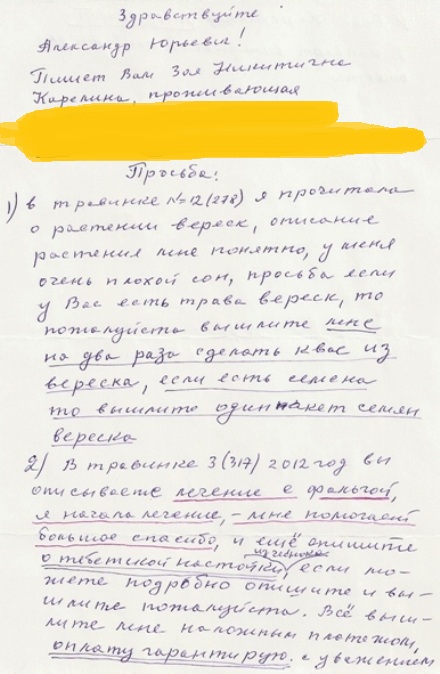 Здравствуйте
Александр Юрьевич!
Пишет Вам Зоя Никитична
Карелина, проживающая
Просьба:
1) в травинке №12 (278) я прочитала
о растении вереск, описание
растения мне понятно, у меня
очень плохой сон, просьба если
у Вас есть трава вереск, то
пожалуйста вышлите мне
на два раза сделать квас из
вереска, если есть семена
то вышлите один пакет семян
вереска
2) В травинке 3 (317) 2012 год вы
описываете лечение с фольгой,
я начала лечение, - мне помогает
большое спасибо, и ещё опишите
о тебетской настойки, если мо-
жете подробно опишите и вы-
шлите пожалуйста. Всё выш-
лите мне наложным платежом,
оплату гарантирую. с уважением